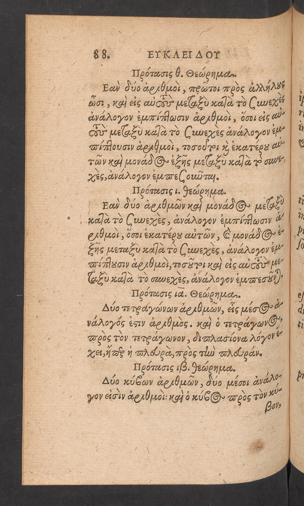 88. ΕΥΚΛΕΙΔΟΥ
Πρότασις θ. Θεώρημα.
Εαν δύο ἀριθμοὶ, πρῶτοι πρὸς ἀλλήλους
ὦσι, καὶ εἰς αὐτοὺς μεταξὺ κατὰ τὸ συνεχὲς
ἀνάλογον ἐμπίπτωσιν ἀριθμοὶ, ὅσοι εἰς αὐ-
τοὺς μεταξὺ κατὰ τὸ συνεχὲς ἀνάλογον ἐμ-
πίπτουσιν ἀριθμοὶ, τοσοῦτοι καὶ ἑκατέρου αὐ-
τῶν καὶ μονάδος ἑξῆς μεταξὺ κατὰ τὸ συνε-
χὲς, ἀνάλογον ἐμπεσοῦνται.
Πρότασις ι. Θεώρημα.
Εαν δύο ἀριθμῶν καὶ μονάδος μεταξὺ
κατὰ τὸ συνεχὲς, ἀνάλογον ἐμπίπτωσιν ἀ-
ριθμοὶ, ὅσοι ἑκατέρου αὐτῶν, καὶ μονάδος ἑ-
ξῆς μεταξὺ κατὰ τὸ συνεχὲς, ἀνάλογον ἐμ-
πίπτουσιν ἀριθμοὶ, τοσοῦτοι καὶ εἰς αὐτοὺς με-
ταξὺ κατὰ τὸ συνεχὲς, ἀνάλογον ἐμπεσοῦν).
Πρότασις ια. Θεώρημα.
Δύο τετραγώνων ἀριθμῶν, εἷς μέσος ἀ-
νάλογός ἐστιν ἀριθμός. καὶ ὁ τετράγωνος,
πρὸς τὸν τετράγωνον, διπλασίονα λόγον ἔ-
χει, ἤπερ ἡ πλευρὰ, πρὸς τὴν πλευράν.
Πρότασις ιβ. Θεώρημα.
Δύο κύβων ἀριθμῶν, δύο μέσοι ἀνάλο-
γον εἰσὶν ἀριθμοί: καὶ ὁ κύβος πρὸς τὸν κύ-
βον,